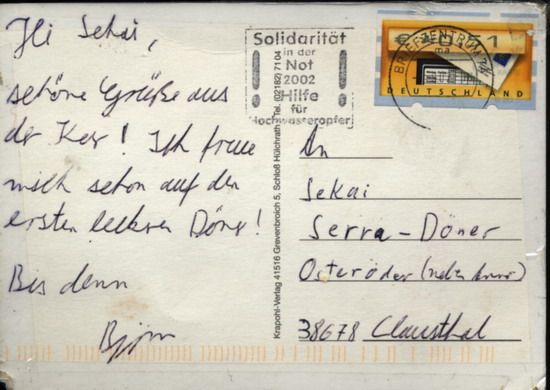 Hi Sekai,
schöne Grüße aus
der Kur! Ich freue
mich schon auf den
ersten leckren Döner!
Bis denn
Björn
Solidarität
in der
Not
2002
Hilfe
für
Hochwasseropfer
BRIEFZENTRUM
DEUTSCHLAND
Krapohl-Verlag 41516 Grevenbroich 5, Schloß Hülchrath, Tel. (02182) 7104
An
Sekai
Serra-Döner
Osteröder (neben
38678 Clausthal